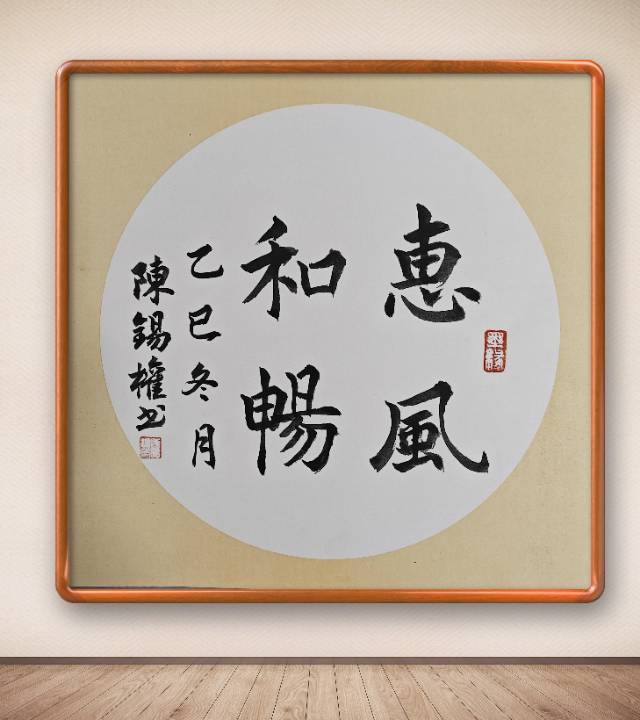 惠風
和暢
乙巳冬月
陳錫權书
墨緣